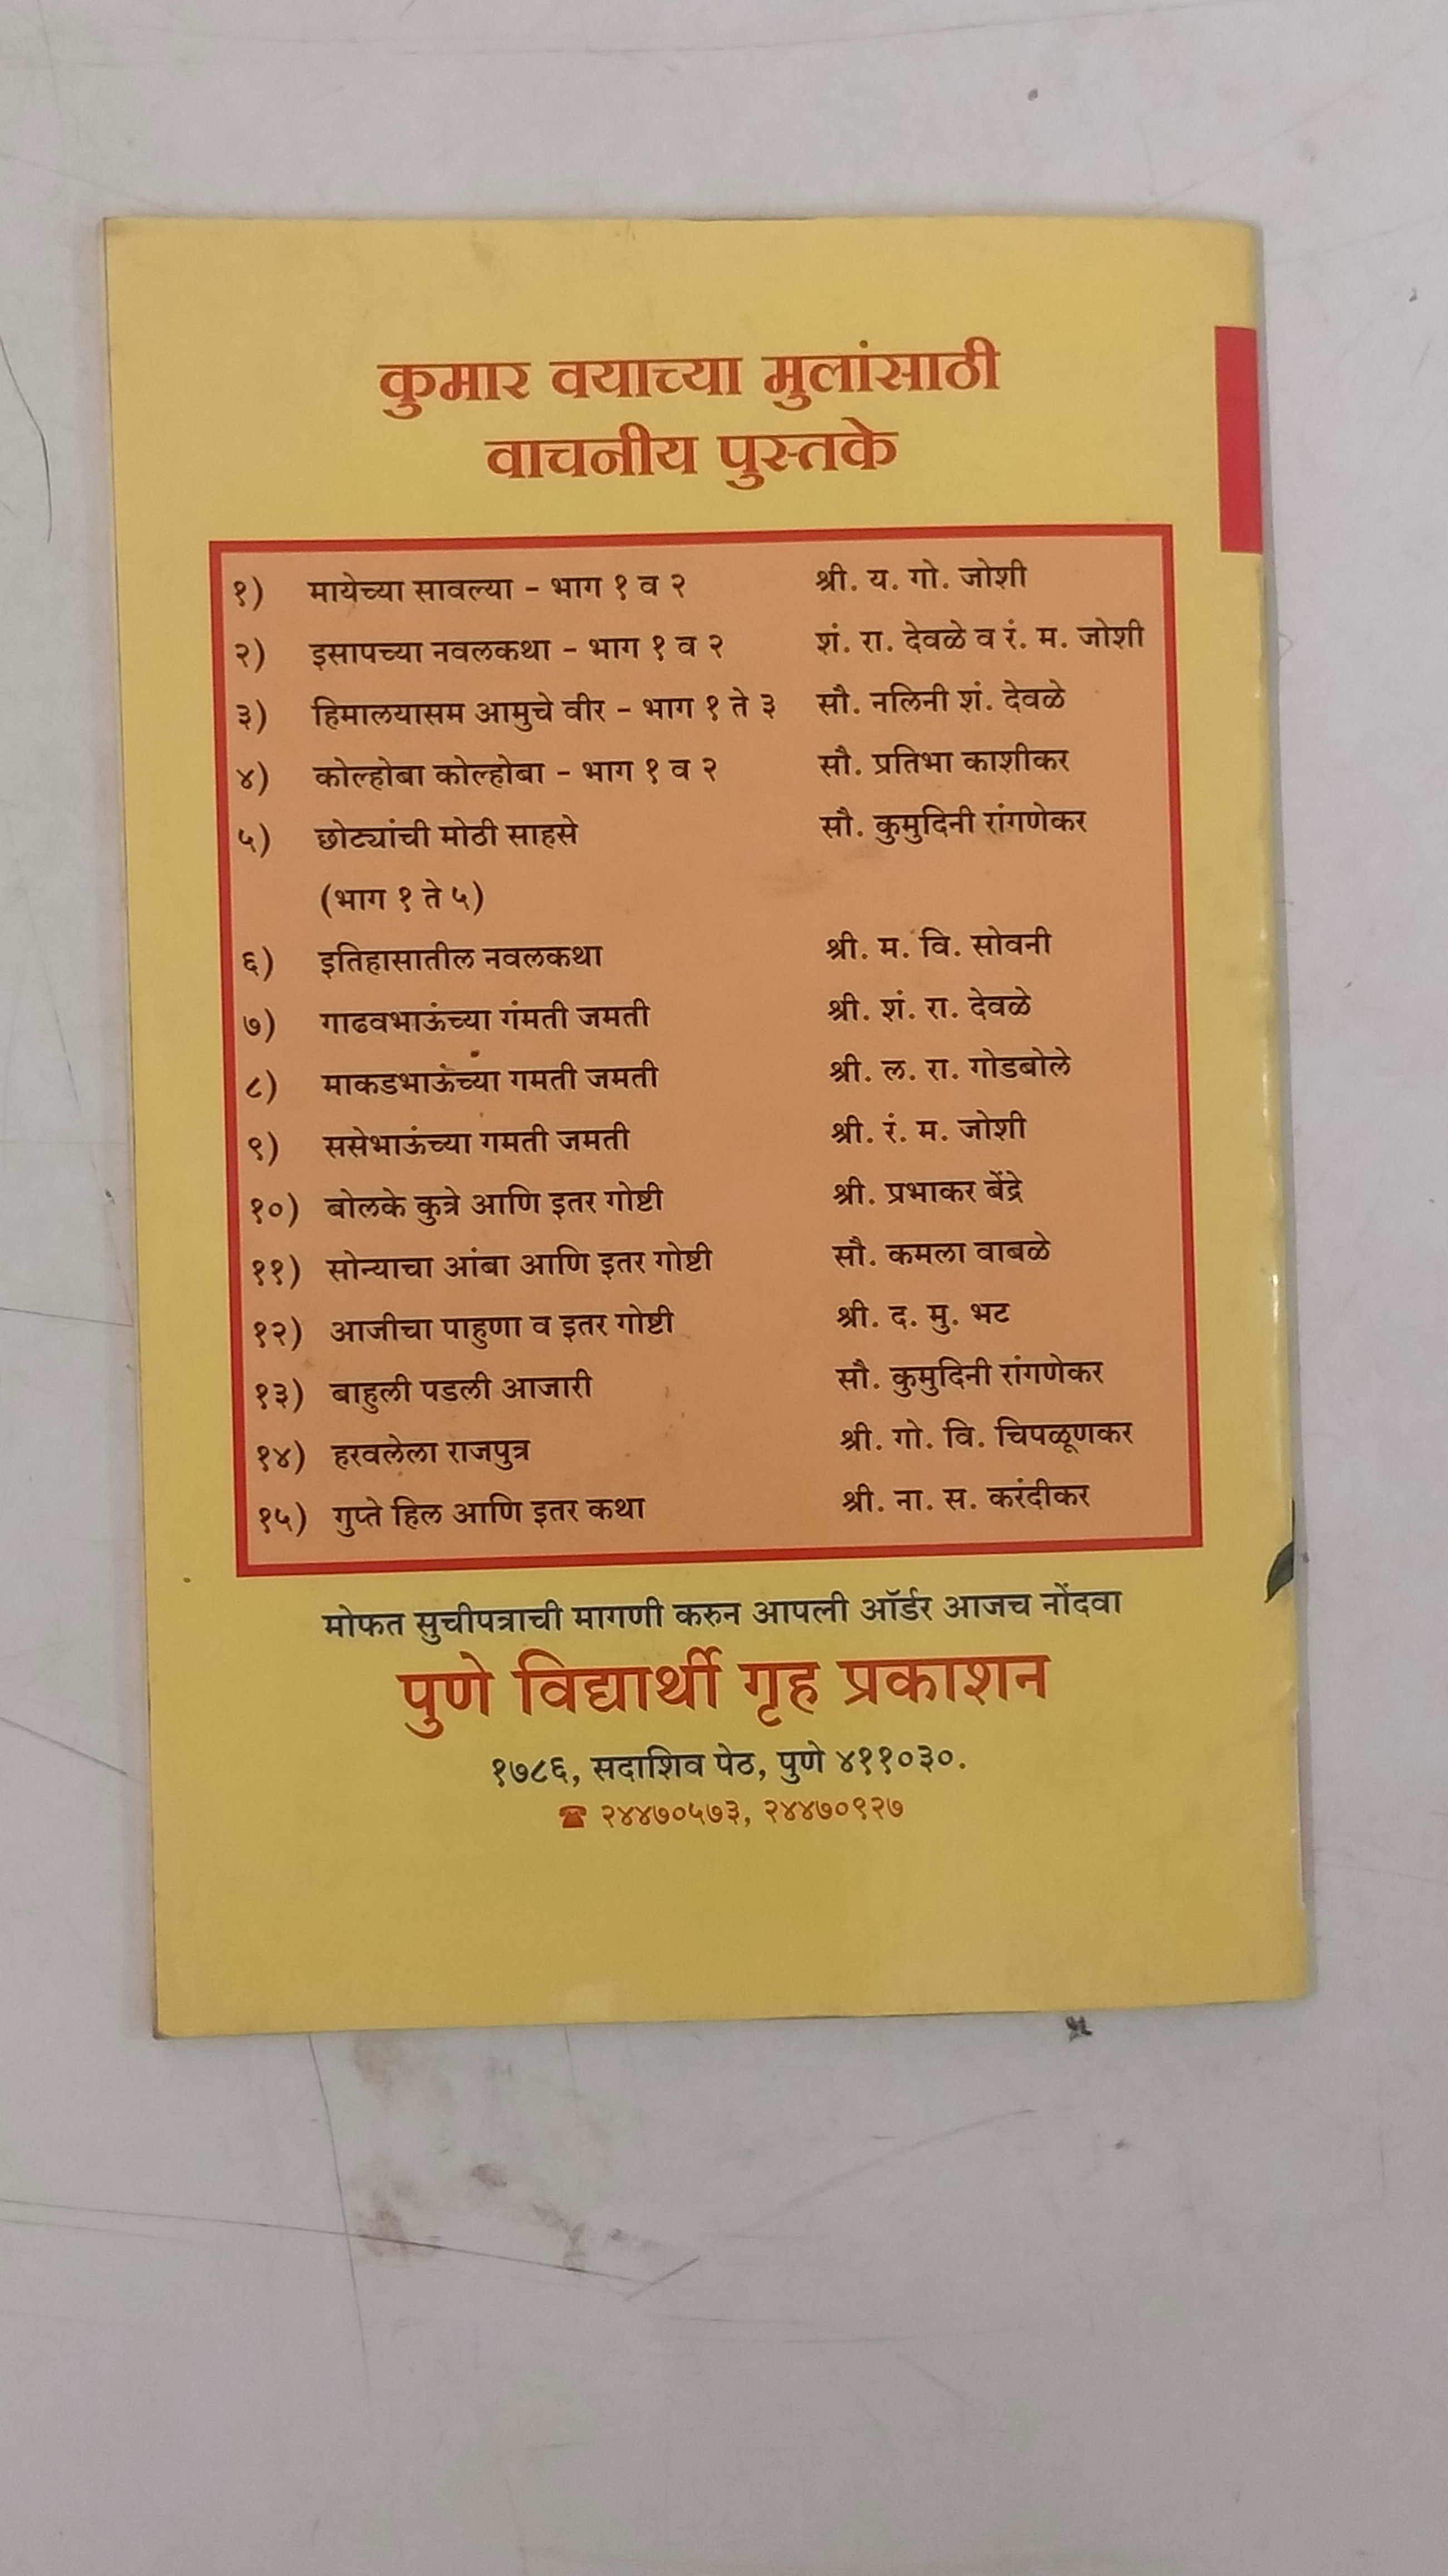 कुमार वयाच्या मुलांसाठी
वाचनीय पुस्तके
१) मायेच्या सावल्या - भाग १ व २ श्री. य. गो. जोशी
२) इसापच्या नवलकथा - भाग १ व २ शं. रा. देवळे व रं. म. जोशी
३) हिमालयासम आमुचे वीर - भाग १ ते ३ सौ. नलिनी शं. देवळे
४) कोल्होबा कोल्होबा - भाग १ व २ सौ. प्रतिभा काशीकर
५) छोट्यांची मोठी साहसे सौ. कुमुदिनी रांगणेकर
(भाग १ ते ५)
६) इतिहासातील नवलकथा श्री. म. वि. सोवनी
७) गाढवभाऊंच्या गंमती जमती श्री. शं. रा. देवळे
८) माकडभाऊंच्या गमती जमती श्री. ल. रा. गोडबोले
९) ससेभाऊंच्या गमती जमती श्री. रं. म. जोशी
१०) बोलके कुत्रे आणि इतर गोष्टी श्री. प्रभाकर बेंद्रे
११) सोन्याचा आंबा आणि इतर गोष्टी सौ. कमला वाबळे
१२) आजीचा पाहुणा व इतर गोष्टी श्री. द. मु. भट
१३) बाहुली पडली आजारी सौ. कुमुदिनी रांगणेकर
१४) हरवलेला राजपुत्र श्री. गो. वि. चिपळूणकर
१५) गुप्ते हिल आणि इतर कथा श्री. ना. स. करंदीकर
मोफत सुचीपत्राची मागणी करुन आपली ऑर्डर आजच नोंदवा
पुणे विद्यार्थी गृह प्रकाशन
१७८६, सदाशिव पेठ, पुणे ४११०३०.
☎ २४४७०५७३, २४४७०९२७